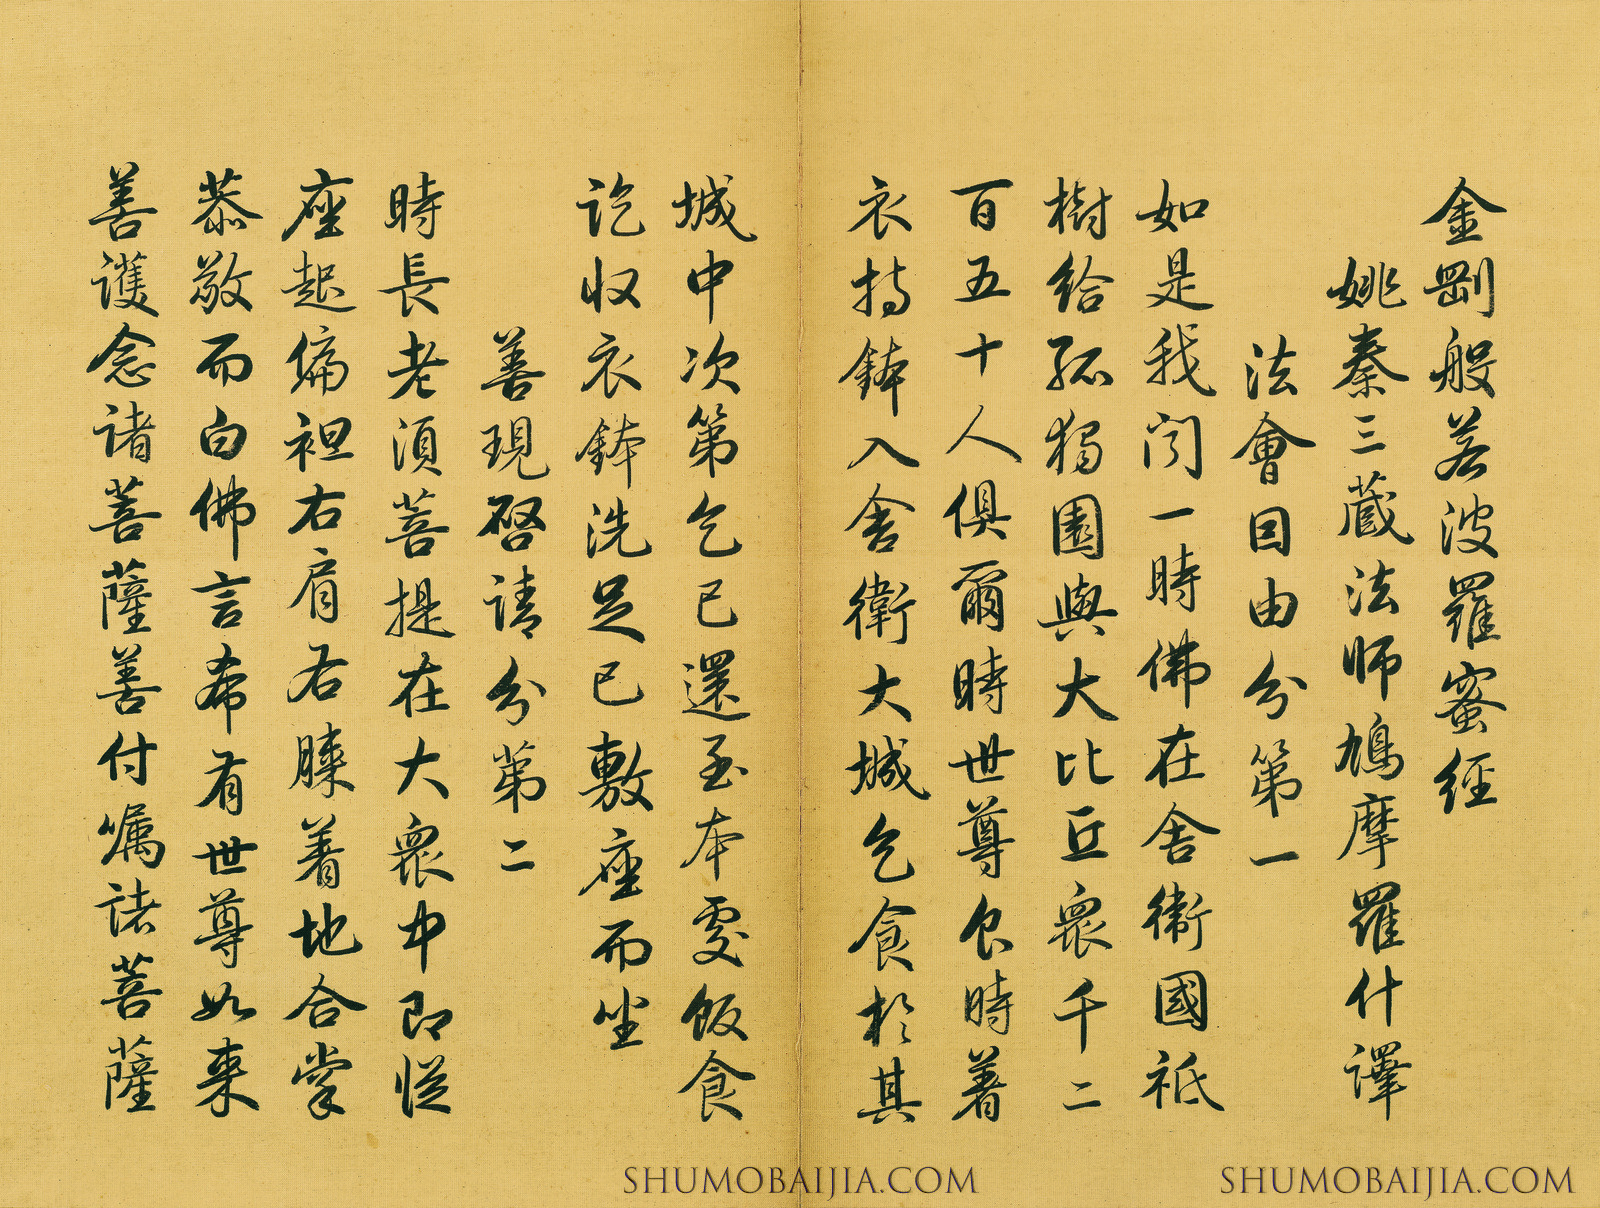 金剛般若波羅蜜經
姚秦三藏法師鳩摩羅什譯
法會因由分第一
如是我聞一時佛在舍衛國祇
樹給孤獨園與大比丘眾千二
百五十人俱爾時世尊食時着
衣持鉢入舍衛大城乞食於其
城中次第乞已還至本處飯食
訖收衣鉢洗足已敷座而坐
善現啓請分第二
時長老須菩提在大眾中即從
座起偏袒右肩右膝着地合掌
恭敬而白佛言希有世尊如来
善護念諸菩薩善付囑諸菩薩
SHUMOBAIJIA.COM
SHUMOBAIJIA.COM